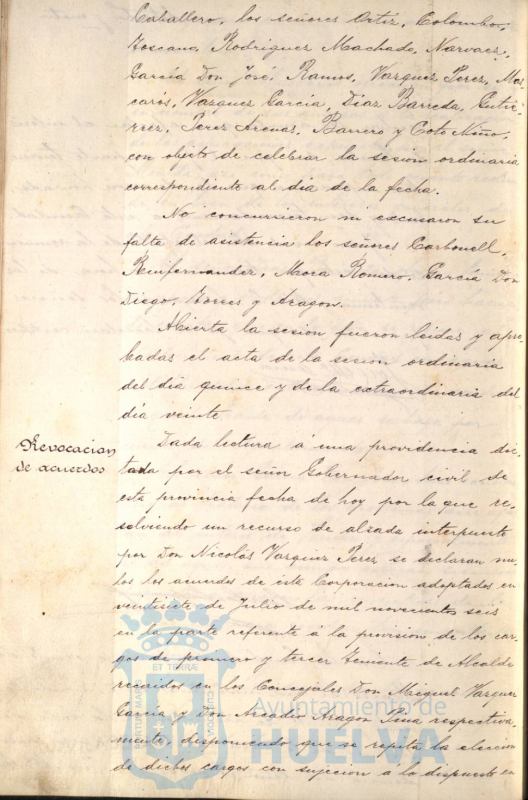 Caballero, los señores Ortiz, Colombo,
Toscano, Rodriguez Machado, Narvaez,
García Don José, Ramos, Vazquez Perez, Mas-
carós, Vazquez García, Diaz Barreda, Gutié-
rrez, Perez Arenas, Barrero y Coto Niño,
con objeto de celebrar la sesion ordinaria
correspondiente al dia de la fecha.
No concurrieron ni excusaron su
falta de asistencia los señores Carbonell,
Mora Romero, García Don
Diego, Torres y Aragon.
Abierta la sesion fueron leidas y apro-
badas el acta de la sesion ordinaria
del dia quince y de la extraordinaria del
dia veinte
Revocacion
de acuerdos
Dada lectura á una providencia dic-
tada por el señor Gobernador civil de
esta provincia fecha de hoy por la que re-
solviendo un recurso de alzada interpuesto
por Don Nicolás Vazquez Perez se declaran nu-
los los acuerdos de esta Corporacion adoptados en
ventisiete de Julio de mil novecientos seis
en la parte referente á la provision de los car-
gos de primero y tercer Teniente de Alcalde
recaidos en los Concejales Don Miguel Vazquez
García y Don Arcadio Aragon Pina respectiva-
mente, disponiendo que se repita la eleccion
de dichos cargos con sujecion á lo dispuesto en
Ayuntamiento de
HUELVA